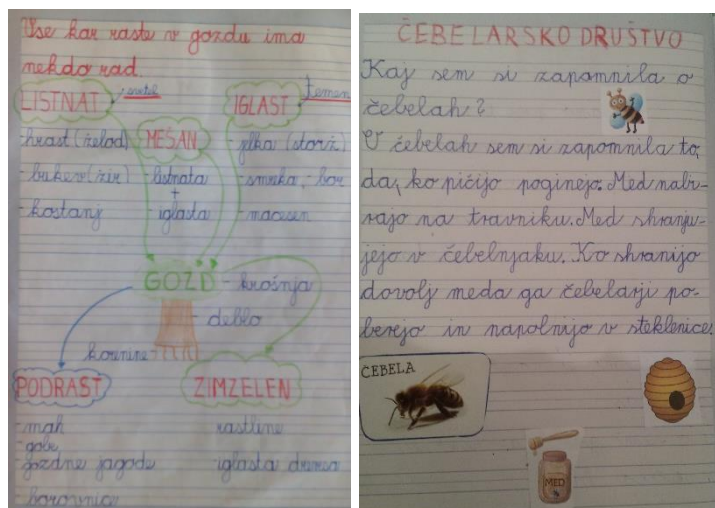 Vse kar raste v gozdu ima
nekdo rad.
LISTNAT
svetel
IGLAST
temen
MEŠAN
- hrast (želod)
- bukev (žir)
- kostanj
- listnata
+
- iglasta
- jelka (storž)
- smreka, - bor
- macesen
GOZD
- krošnja
- deblo
korenine
PODRAST
- mah
- gobe
- gozdne jagode
- borovnice
ZIMZELEN
rastline
iglasta drevesa
ČEBELARSKO DRUŠTVO
Kaj sem si zapomnila o
čebelah?
O čebelah sem si zapomnila to,
da, ko pičijo poginejo. Med nabi-
rajo na travniku. Med shranju-
jejo v čebelnjaku. Ko shranijo
dovolj meda ga čebelarji po-
berejo in napolnijo v steklenice.
ČEBELA
MED